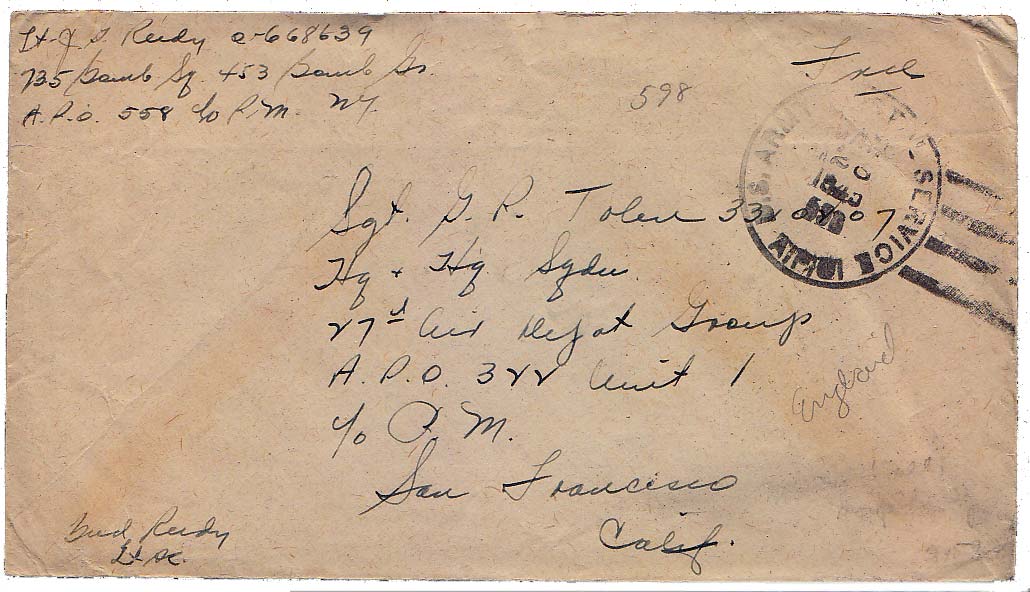 Lt. J. S. Reidy O-668639
735 Bomb Sq. 453 Bomb Gr.
A.P.O. 558 c/o P.M. N.Y.
Free
598
U.S. ARMY SERVICE
Sgt. G. R. Tolen
Hq + Hq Sqdn
27th Air Depot Group
A.P.O. 322 Unit 1
c/o P.M.
San Francisco
Calif.
England
Bud Reidy
Lt AC.